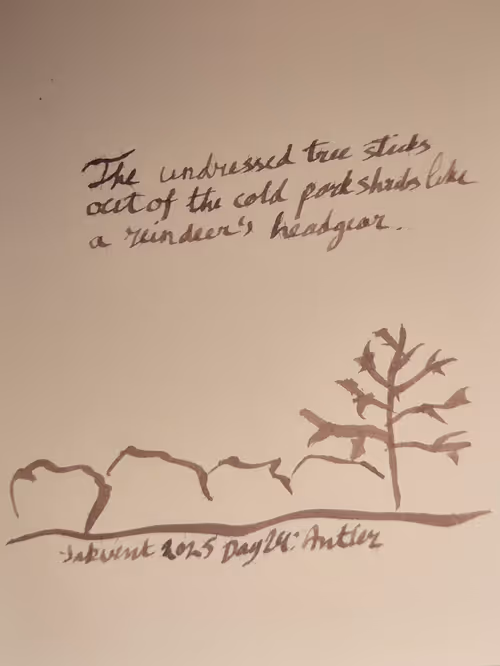 The undressed tree sticks
out of the cold park shrubs like
a reindeer's headgear.
Inkvent 2025 Day 24: Antler